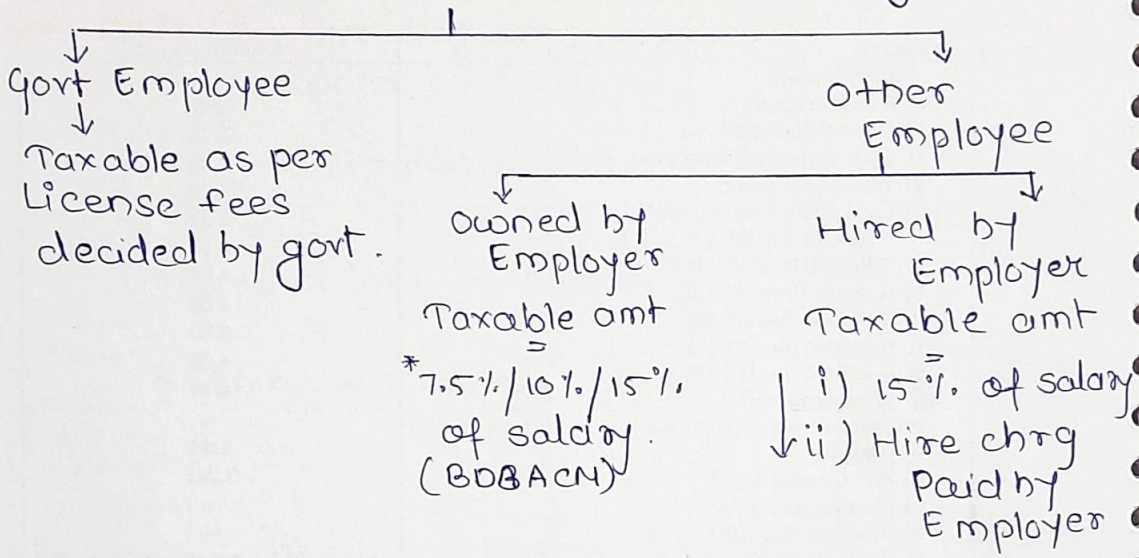 Govt Employee
Taxable as per
License fees
decided by govt.
Other
Employee
Owned by
Employer
Taxable amt
=
*7.5%/10%/15%
of salary.
(BDBACM)
Hired by
Employer
Taxable amt
=
i) 15% of salary
ii) Hire chrg
Paid by
Employer